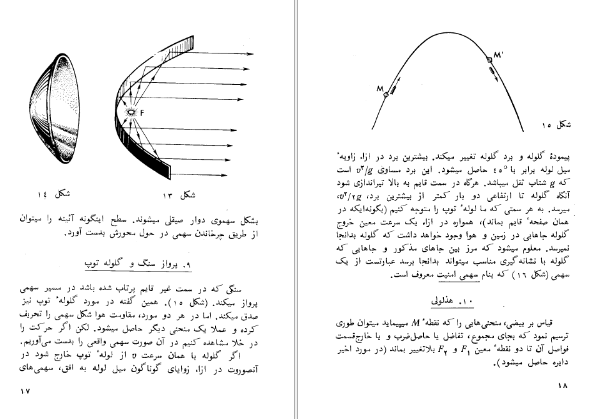 F
شکل ۱۳
شکل ۱٤
بشکل سهموی دوار صیقل میشوند. سطح اینگونه آینه را میتوان
از طریق چرخاندن سهمی در حول محورش بدست آورد.
۹. پرواز سنگ و گلوله توپ
سنگی که در سمت غیر قایم پرتاب شده باشد در مسیر سهمی
پرواز میکند. (شکل ۱۵). همین گفته در مورد گلولهٔ توپ نیز
صدق میکند. اما در هر دو مورد، مقاومت هوا شکل سهمی را تحریف
کرده و عملا یک منحنی دیگر حاصل میشود. لکن اگر حرکت را
در خلا مشاهده کنیم در آن صورت سهمی واقعی را بدست می‌آوریم.
اگر گلوله با همان سرعت v از لولهٔ توپ خارج شود در
آنصورت در ازاء زوایای گوناگون میل لوله به افق، سهمی‌های
۱۷
M
M'
شکل ۱۵
پیمودهٔ گلوله و برد گلوله تغییر میکند. بیشترین برد در ازاء زاویهٔ
میل لوله برابر با ٤٥° حاصل میشود. این برد مساوی v²/g است
که g شتاب ثقل میباشد. هرگاه در سمت قایم به بالا تیراندازی شود
آنگاه گلوله تا ارتفاعی دو بار کمتر از بیشترین برد، v²/۲g،
میرسد. به هر سمتی که ما لولهٔ توپ را متوجه کنیم (بگونه‌ایکه در
همان صفحهٔ قایم بماند)، همواره در ازاء یک سرعت معین خروج
گلوله جاهایی در زمین و هوا وجود خواهد داشت که گلوله بدانجا
نمیرسد. معلوم میشود که مرز بین جاهای مذکور و جاهایی که
گلوله با نشانه‌گیری مناسب میتواند بدانجا برسد عبارتست از یک
سهمی (شکل ۱٦) که بنام سهمی امنیت معروف است.
۱۰. هذلولی
قیاس بر بیضی، منحنی‌هایی را که نقطهٔ M میپیماید میتوان طوری
ترسیم نمود که بجای مجموع، تفاضل یا حاصل‌ضرب و یا خارج‌قسمت
فواصل آن تا دو نقطهٔ معین F₁ و F₂ بلاتغییر بماند (در مورد اخیر
دایره حاصل میشود).
۱۸